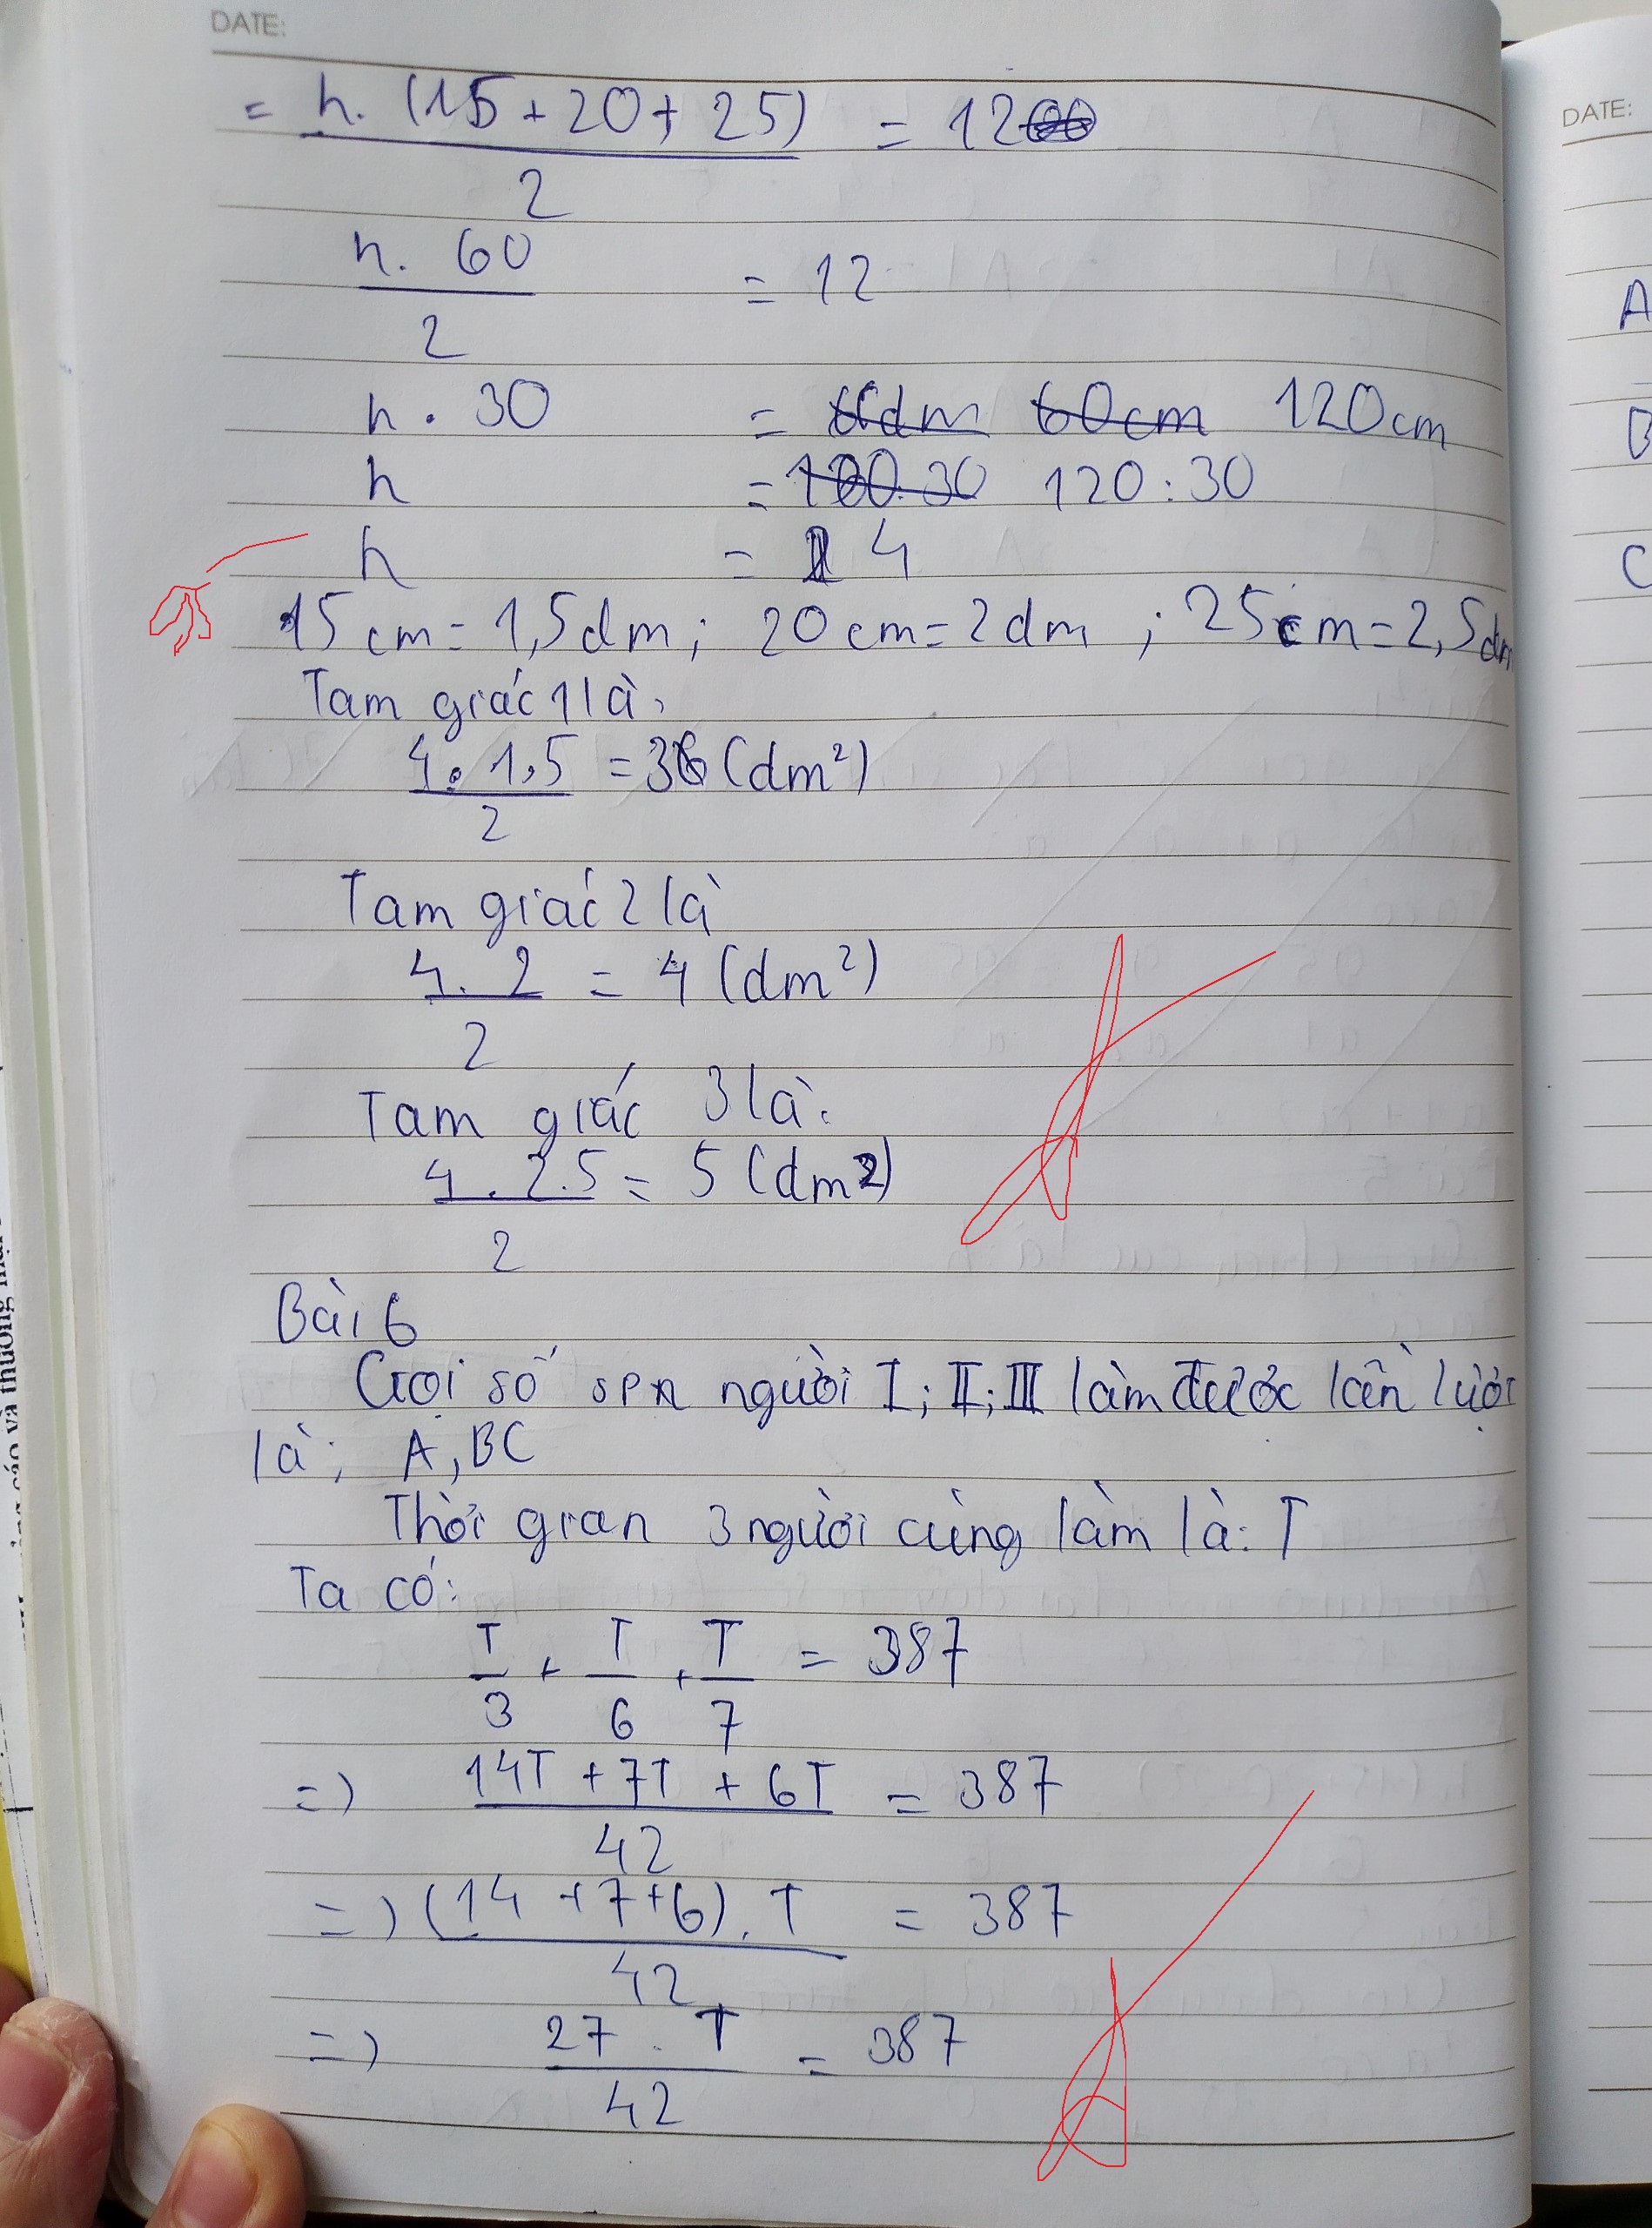 DATE:
= h. (15 + 20 + 25) = 12
2
h. 60 = 12
2
h . 30 = 6dm 60cm 120cm
h = 120 : 30
h = 4
15 cm = 1,5 dm ; 20 cm = 2 dm ; 25 cm = 2,5 dm
Tam giác 1 là:
4 . 1,5 = 3 (dm²)
2
Tam giác 2 là
4 . 2 = 4 (dm²)
2
Tam giác 3 là:
4 . 2.5 = 5 (dm2)
2
Bài 6
Gọi số sp người I; II; III làm được lần lượt
là: A, BC
Thời gian 3 người cùng làm là: T
Ta có:
T + T + T = 387
3 6 7
=) 14T + 7T + 6T = 387
42
=) (14 + 7 + 6) . T = 387
42
=) 27 . T = 387
42
DATE:
A
B
C